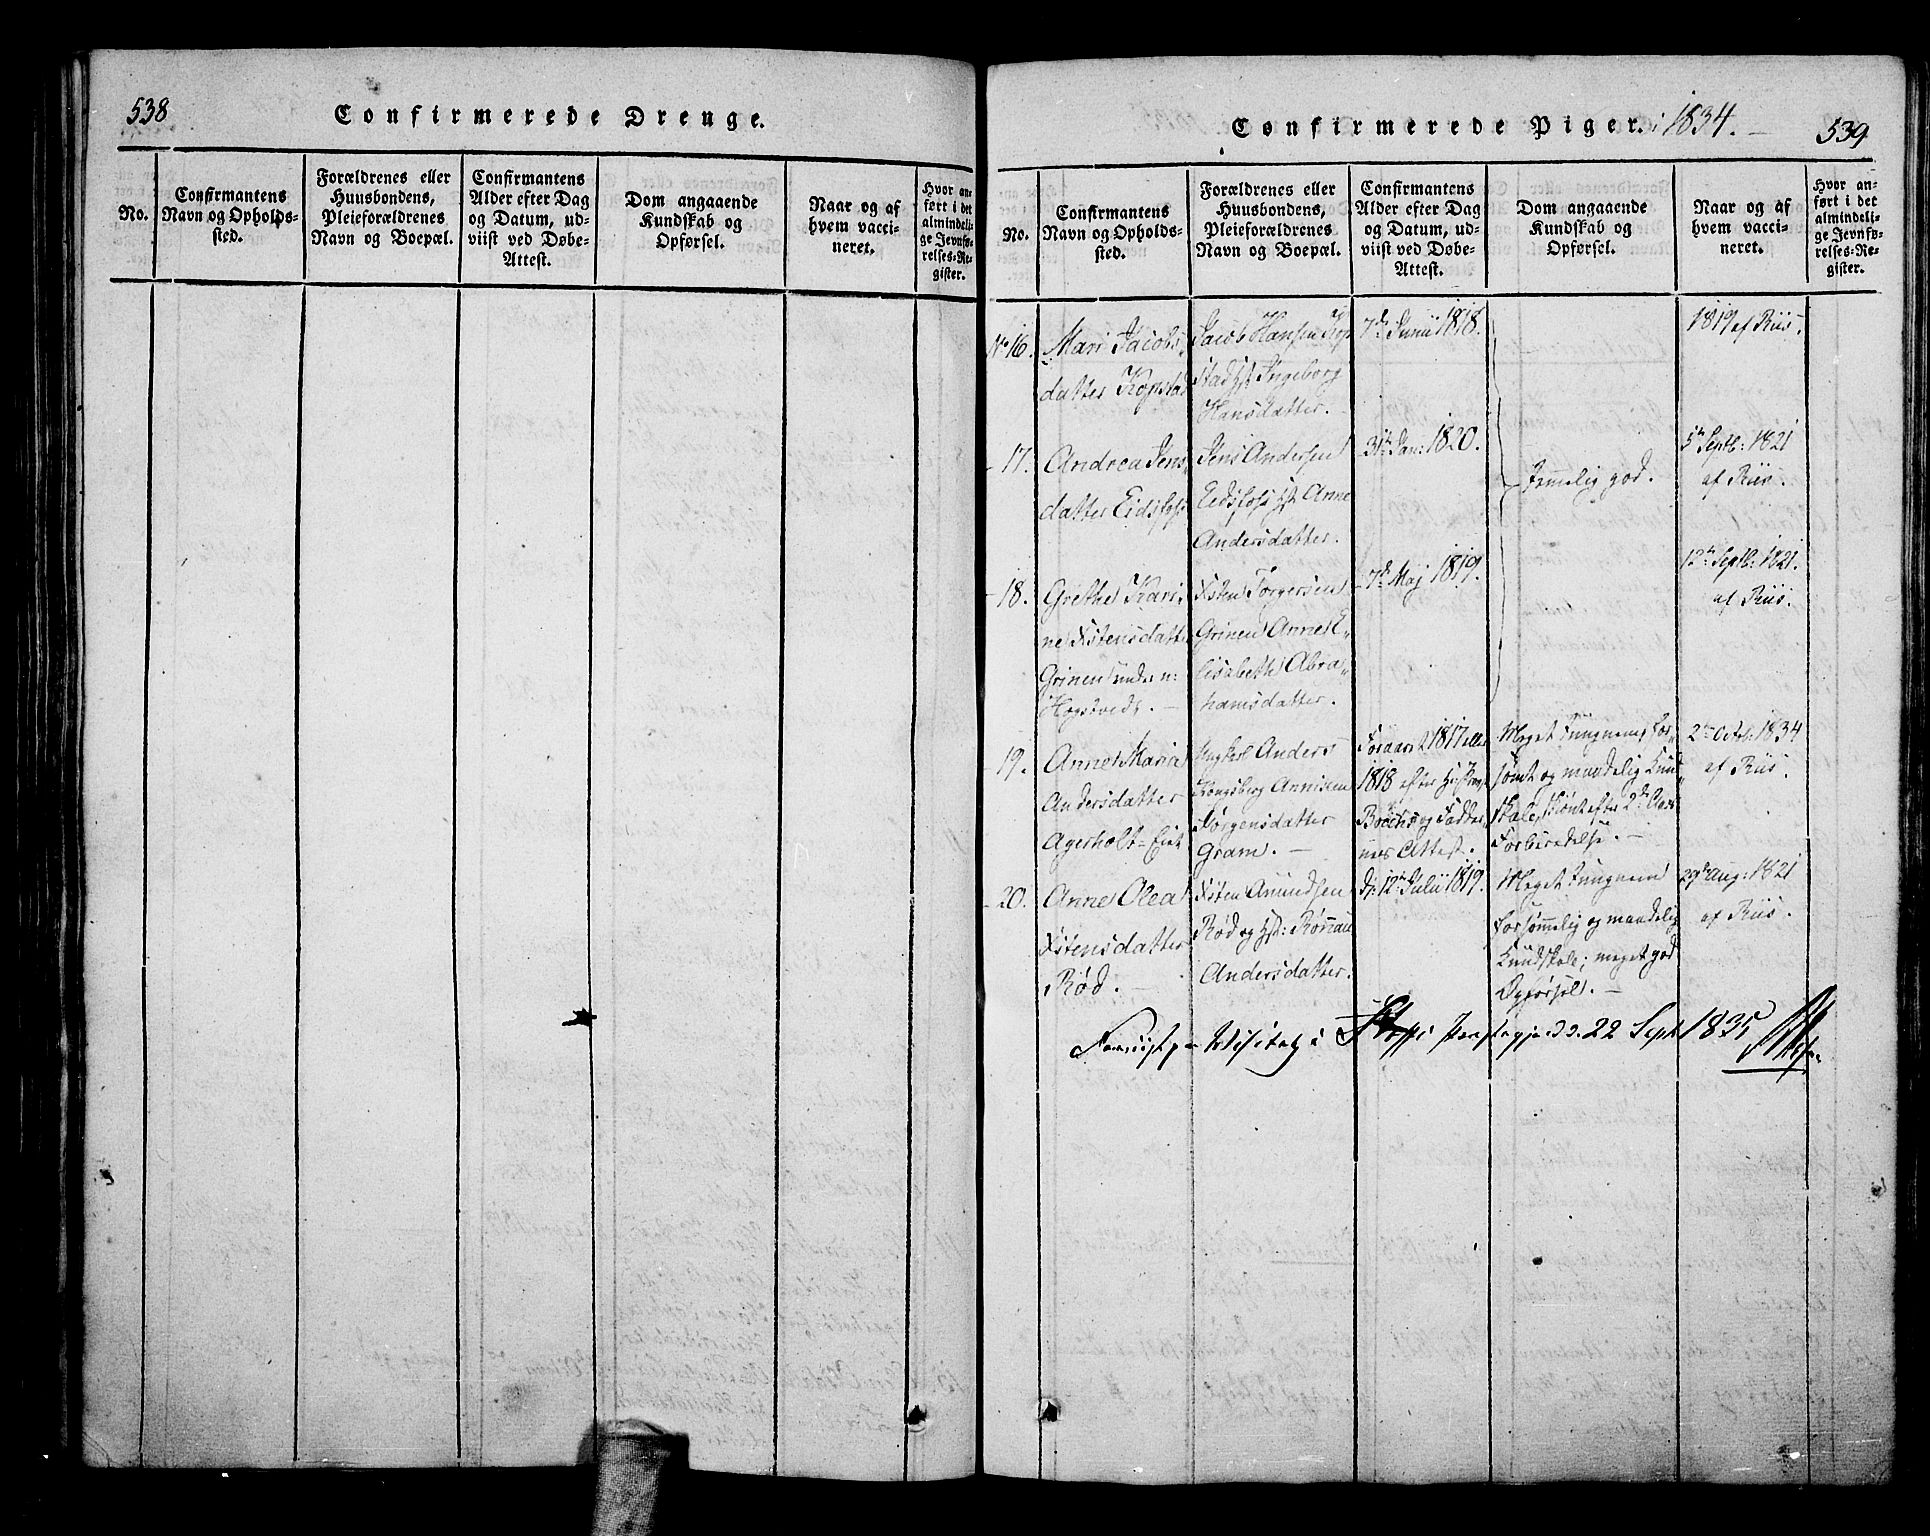 538
Confirmerede Drenge.
No.
Confirmantens
Navn og Opholds-
sted.
Forældrenes eller
Huusbondens,
Pleieforældrenes
Navn og Boepæl.
Confirmantens
Alder efter Dag
og Datum, ud-
viist ved Døbe-
Attest.
Dom angaaende
Kundskab og
Opførsel.
Naar og af
hvem vacci-
neret.
Hvor an-
ført i det
almindeli-
ge Jevnfø-
relses-Re-
gister.
Confirmerede Piger. i 1834.
539
No.
Confirmantens
Navn og Opholds-
sted.
Forældrenes eller
Huusbondens,
Pleieforældrenes
Navn og Boepæl.
Confirmantens
Alder efter Dag
og Datum, ud-
viist ved Døbe-
Attest.
Dom angaaende
Kundskab og
Opførsel.
Naar og af
hvem vacci-
neret.
Hvor an-
ført i det
almindeli-
ge Jevnfø-
relses-Re-
gister.
No 16.
Mari Jacobs-
datter Kopstad
Jacob Hansen Kop
stad Hst Ingeborg
Hansdatter.
7de Junii 1818.
1819 af Riis.
17.
Andrea Jens
datter Eidsfos
Jens Andersen
Eidsfos Hst Anne
Andersdatter.
31te Jan: 1820.
Temmelig god.
5te Septb: 1821
af Riis.
18.
Grethe Kari-
ne Istensdatt
Grinen under n:
Hogstvedt.
Isten Torgersen
Grinen Anne E-
lisabeth Abra-
hamsdatter.
7de Maj 1819.
12te Septb: 1821.
af Riis.
19.
Anne Maria
Andersdatter
Agerholt-Eiet
Ungkarl Anders
Kongsberg Annisken
Jørgensdatter
Gram.
Foraaret 1817 eller
1818 efter
Brochs og Fadder-
nes Attest.
Meget Tungnem, For-
sømt og maadelig Kund
skab, skjønt efter 2de Aars
Forberedelse.
2den Octob: 1834
af Riis.
20.
Anne Olea
Istensdatter
Rød.
Isten Amundsen
Rød og Hst: Rønnau
Andersdatter.
D: 12te Julii 1819.
Meget Tungnem
Forsømmelig og maadelig
Kundskab; meget god
Opførsel.
29de Aug: 1821
af Riis.
Foreviist paa Visitats i Præstegjeld d. 22 Sept 1835